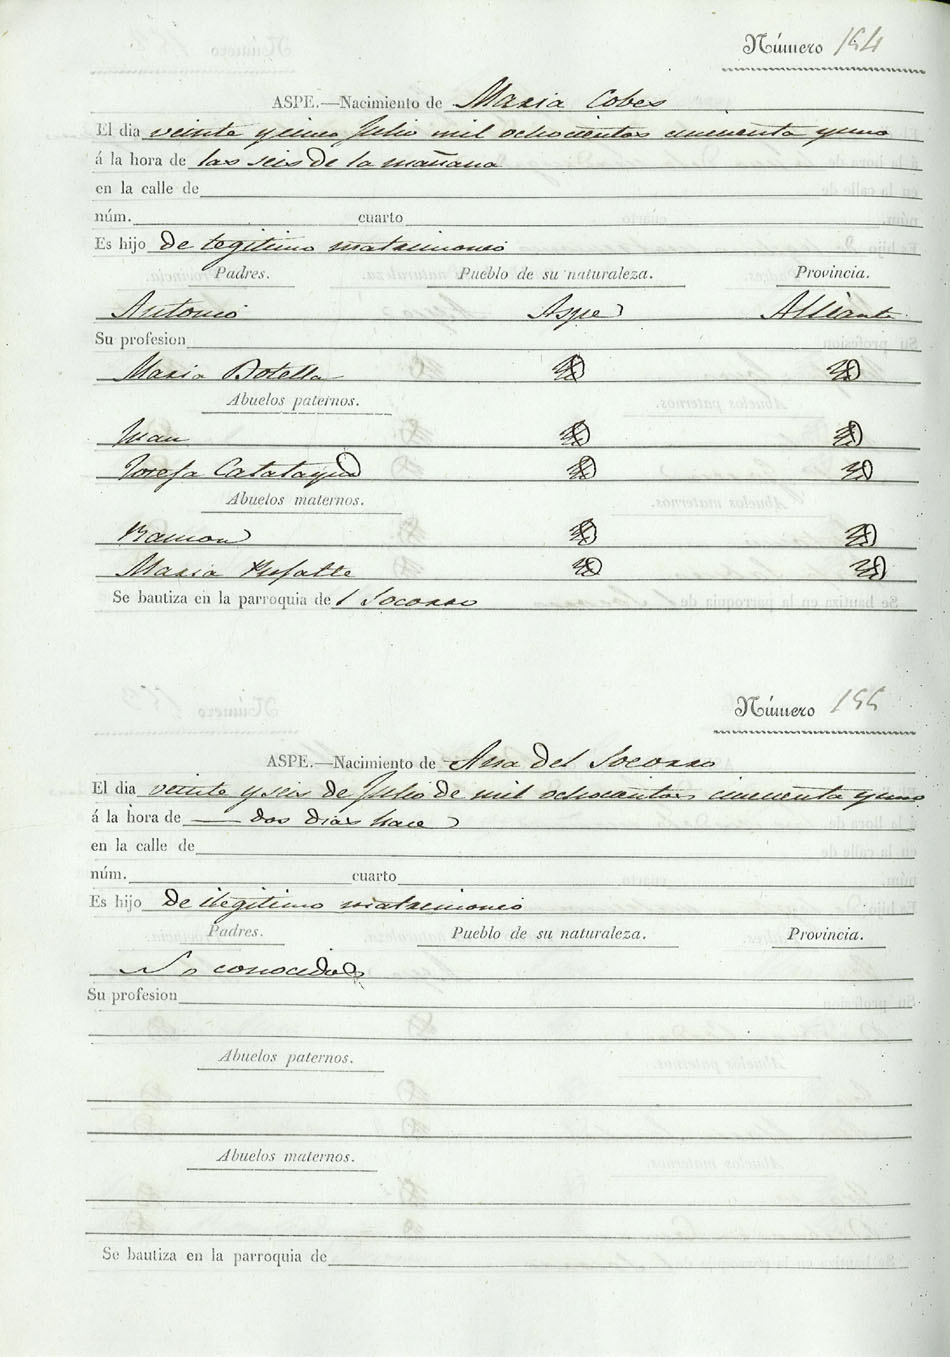 Número 154
ASPE.—Nacimiento de Maria Cobes
El dia veinte y cinco Julio mil ochocientos cincuenta y uno
á la hora de las seis de la mañana
en la calle de
núm. cuarto
Es hijo de legitimo matrimonio
Padres. Pueblo de su naturaleza. Provincia.
Antonio Aspe Alicante
Su profesion
Maria Botella
Abuelos paternos.
Juan
Josefa
Abuelos maternos.
Ramon
Maria
Se bautiza en la parroquia de l Socorro
Número 155
ASPE.—Nacimiento de Ana del Socorro
El dia veinte y seis de Julio de mil ochocientos cincuenta y uno
á la hora de — dos dias hace
en la calle de
núm. cuarto
Es hijo de ilegitimo matrimonio
Padres. Pueblo de su naturaleza. Provincia.
conocidos
Su profesion
Abuelos paternos.
Abuelos maternos.
Se bautiza en la parroquia de